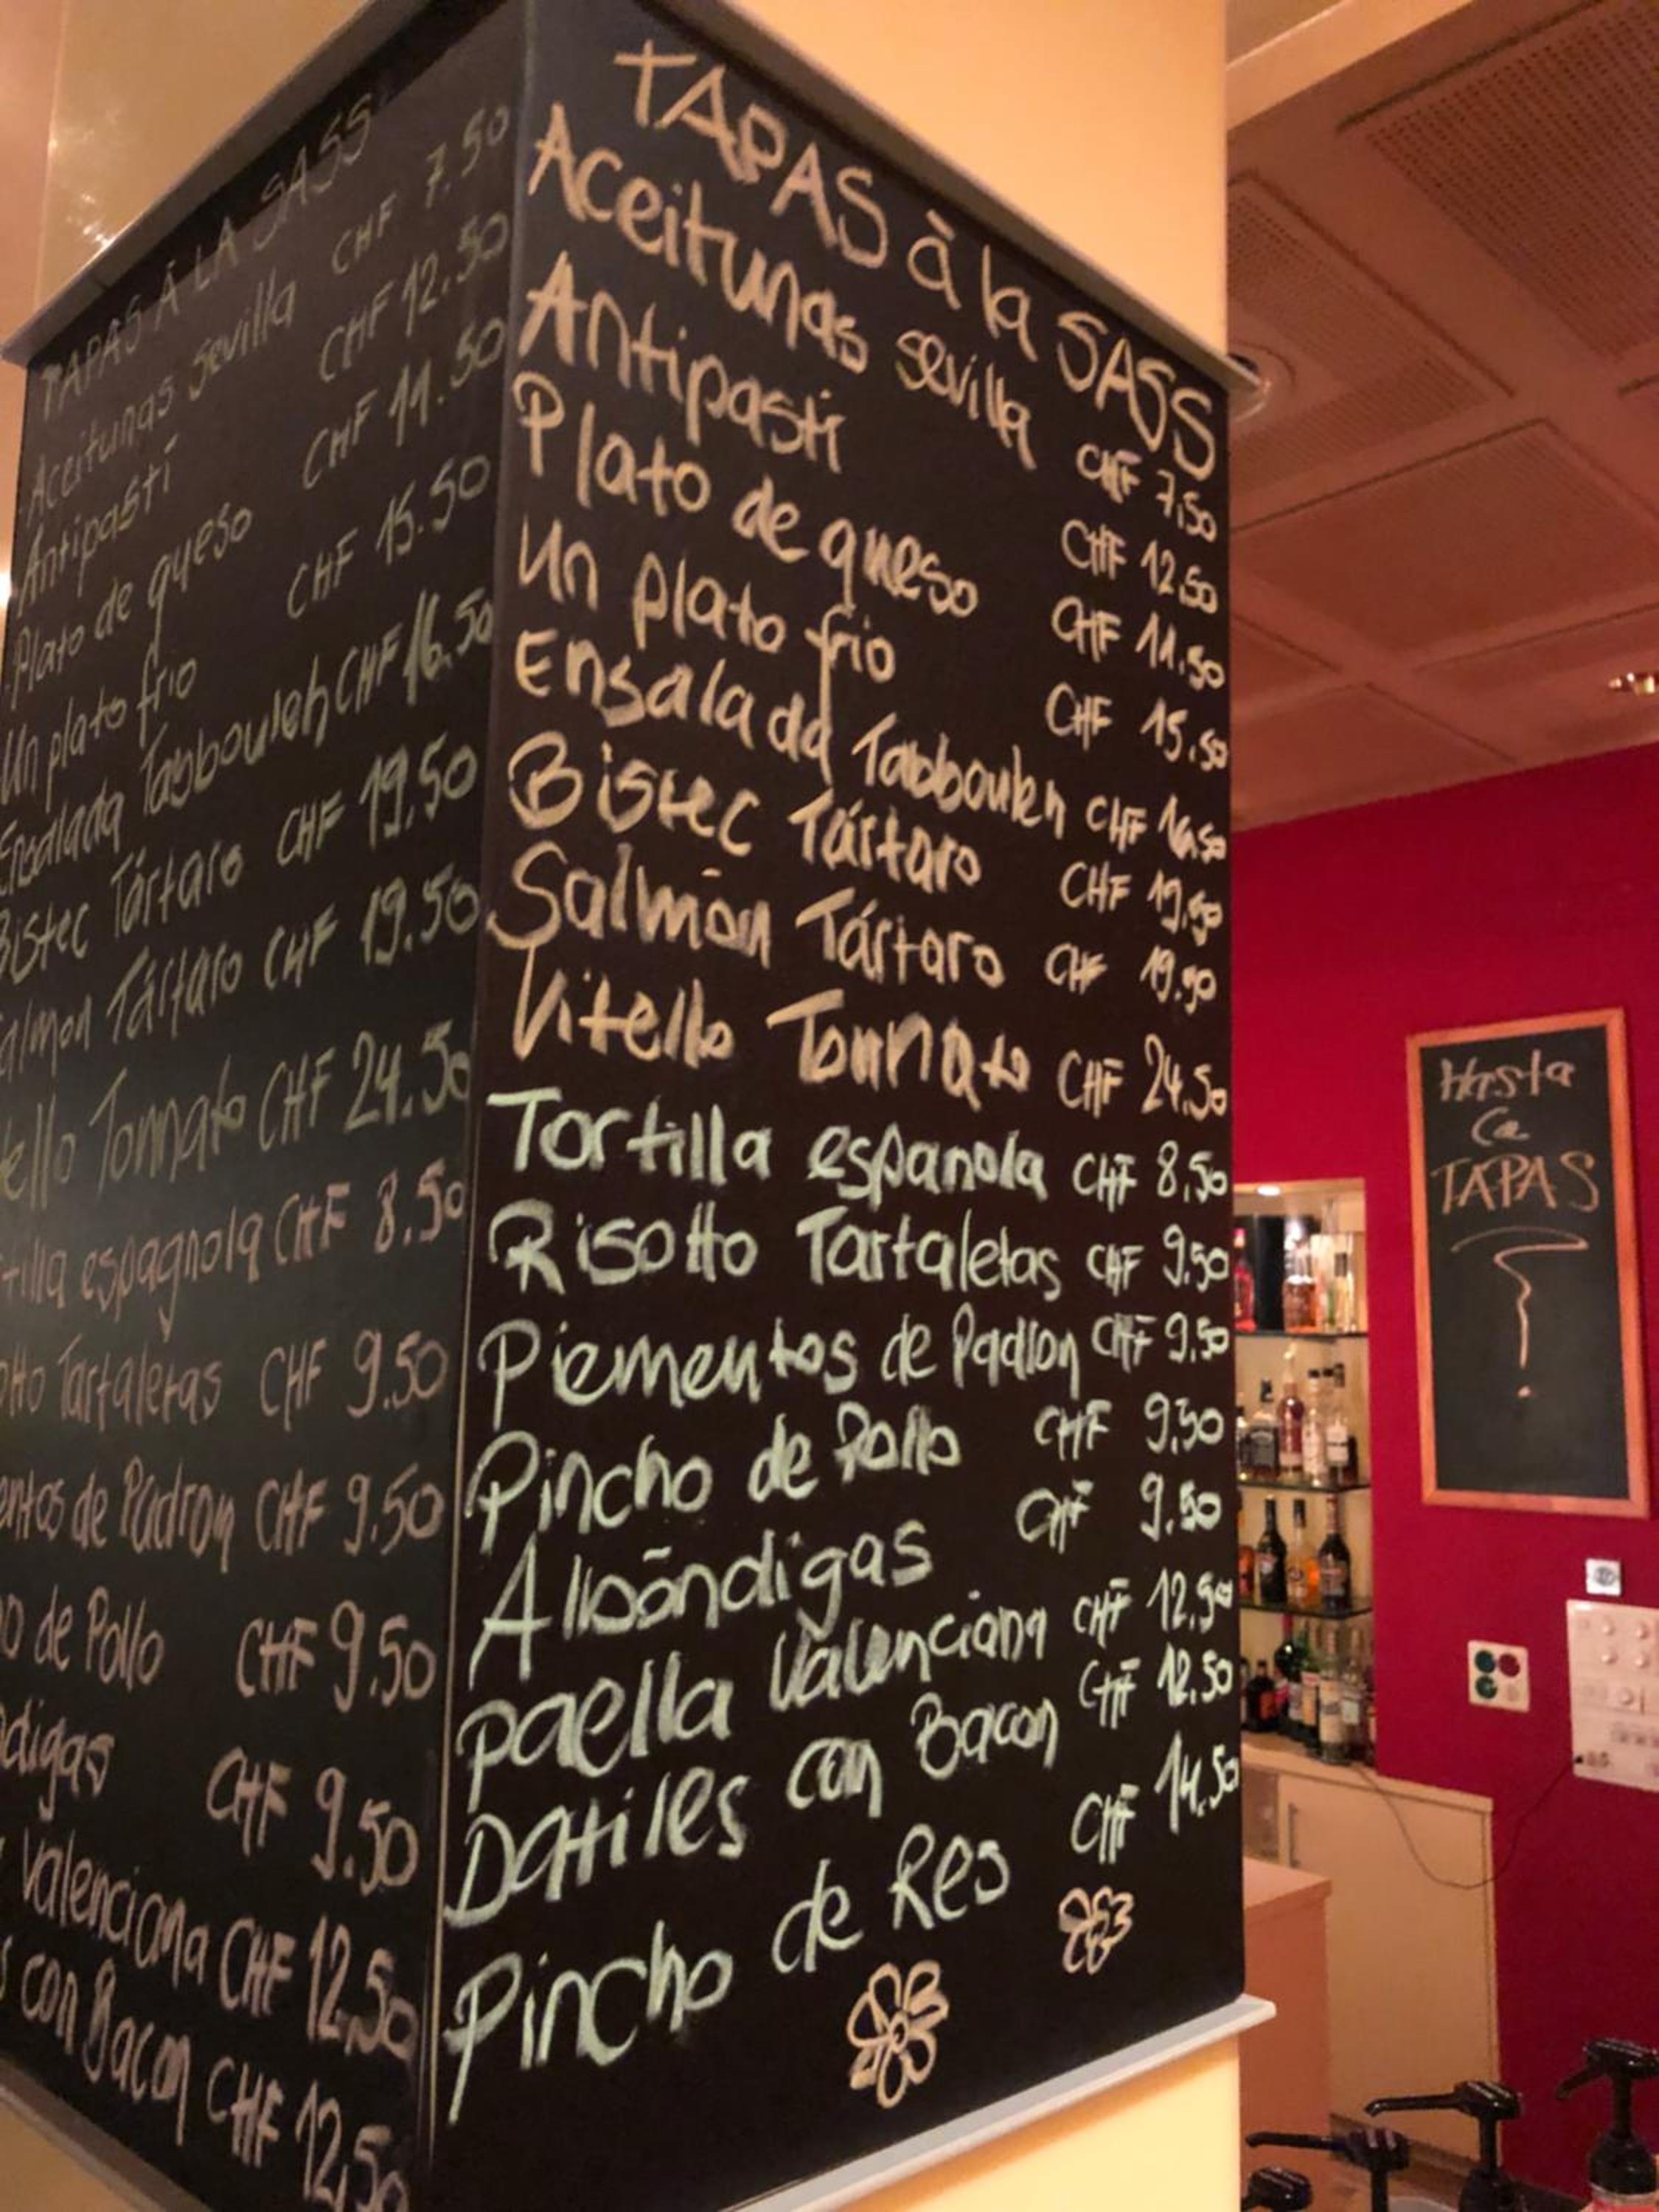 TAPAS À LA SASS
Aceitunas Sevilla CHF 7.50
Antipasti CHF 12.50
Plato de queso CHF 11.50
Un plato frio CHF 15.50
Ensalada Tabbouleh CHF 16.50
Bistec Tártaro CHF 19.50
almon Tártaro CHF 19.50
ello Tonnato CHF 24.50
tilla espagnola CHF 8.50
otto Tartaletas CHF 9.50
entos de Padron CHF 9.50
o de Pollo CHF 9.50
digas CHF 9.50
Valenciana CHF 12,50
s con Bacon CHF 12,50
TAPAS à la SASS
Aceitunas Sevilla CHF 7,50
Antipasti CHF 12.50
Plato de queso CHF 11.50
Un plato frio CHF 15.50
Ensalada Tabbouleh CHF 16.50
Bistec Tártaro CHF 19,50
Salmōn Tártaro CHF 19.50
Vitello Tonnato CHF 24.50
Tortilla espanola CHF 8,50
Risotto Tartaletas CHF 9.50
Piementos de Padron CHF 9.50
Pincho de Pollo CHF 9.50
Alboāndigas CHF 9.50
paella Valenciana CHF 12.50
Datiles con Bacon CHF 12.50
Pincho de Res CHF 14.50
Hasta
TAPAS
?